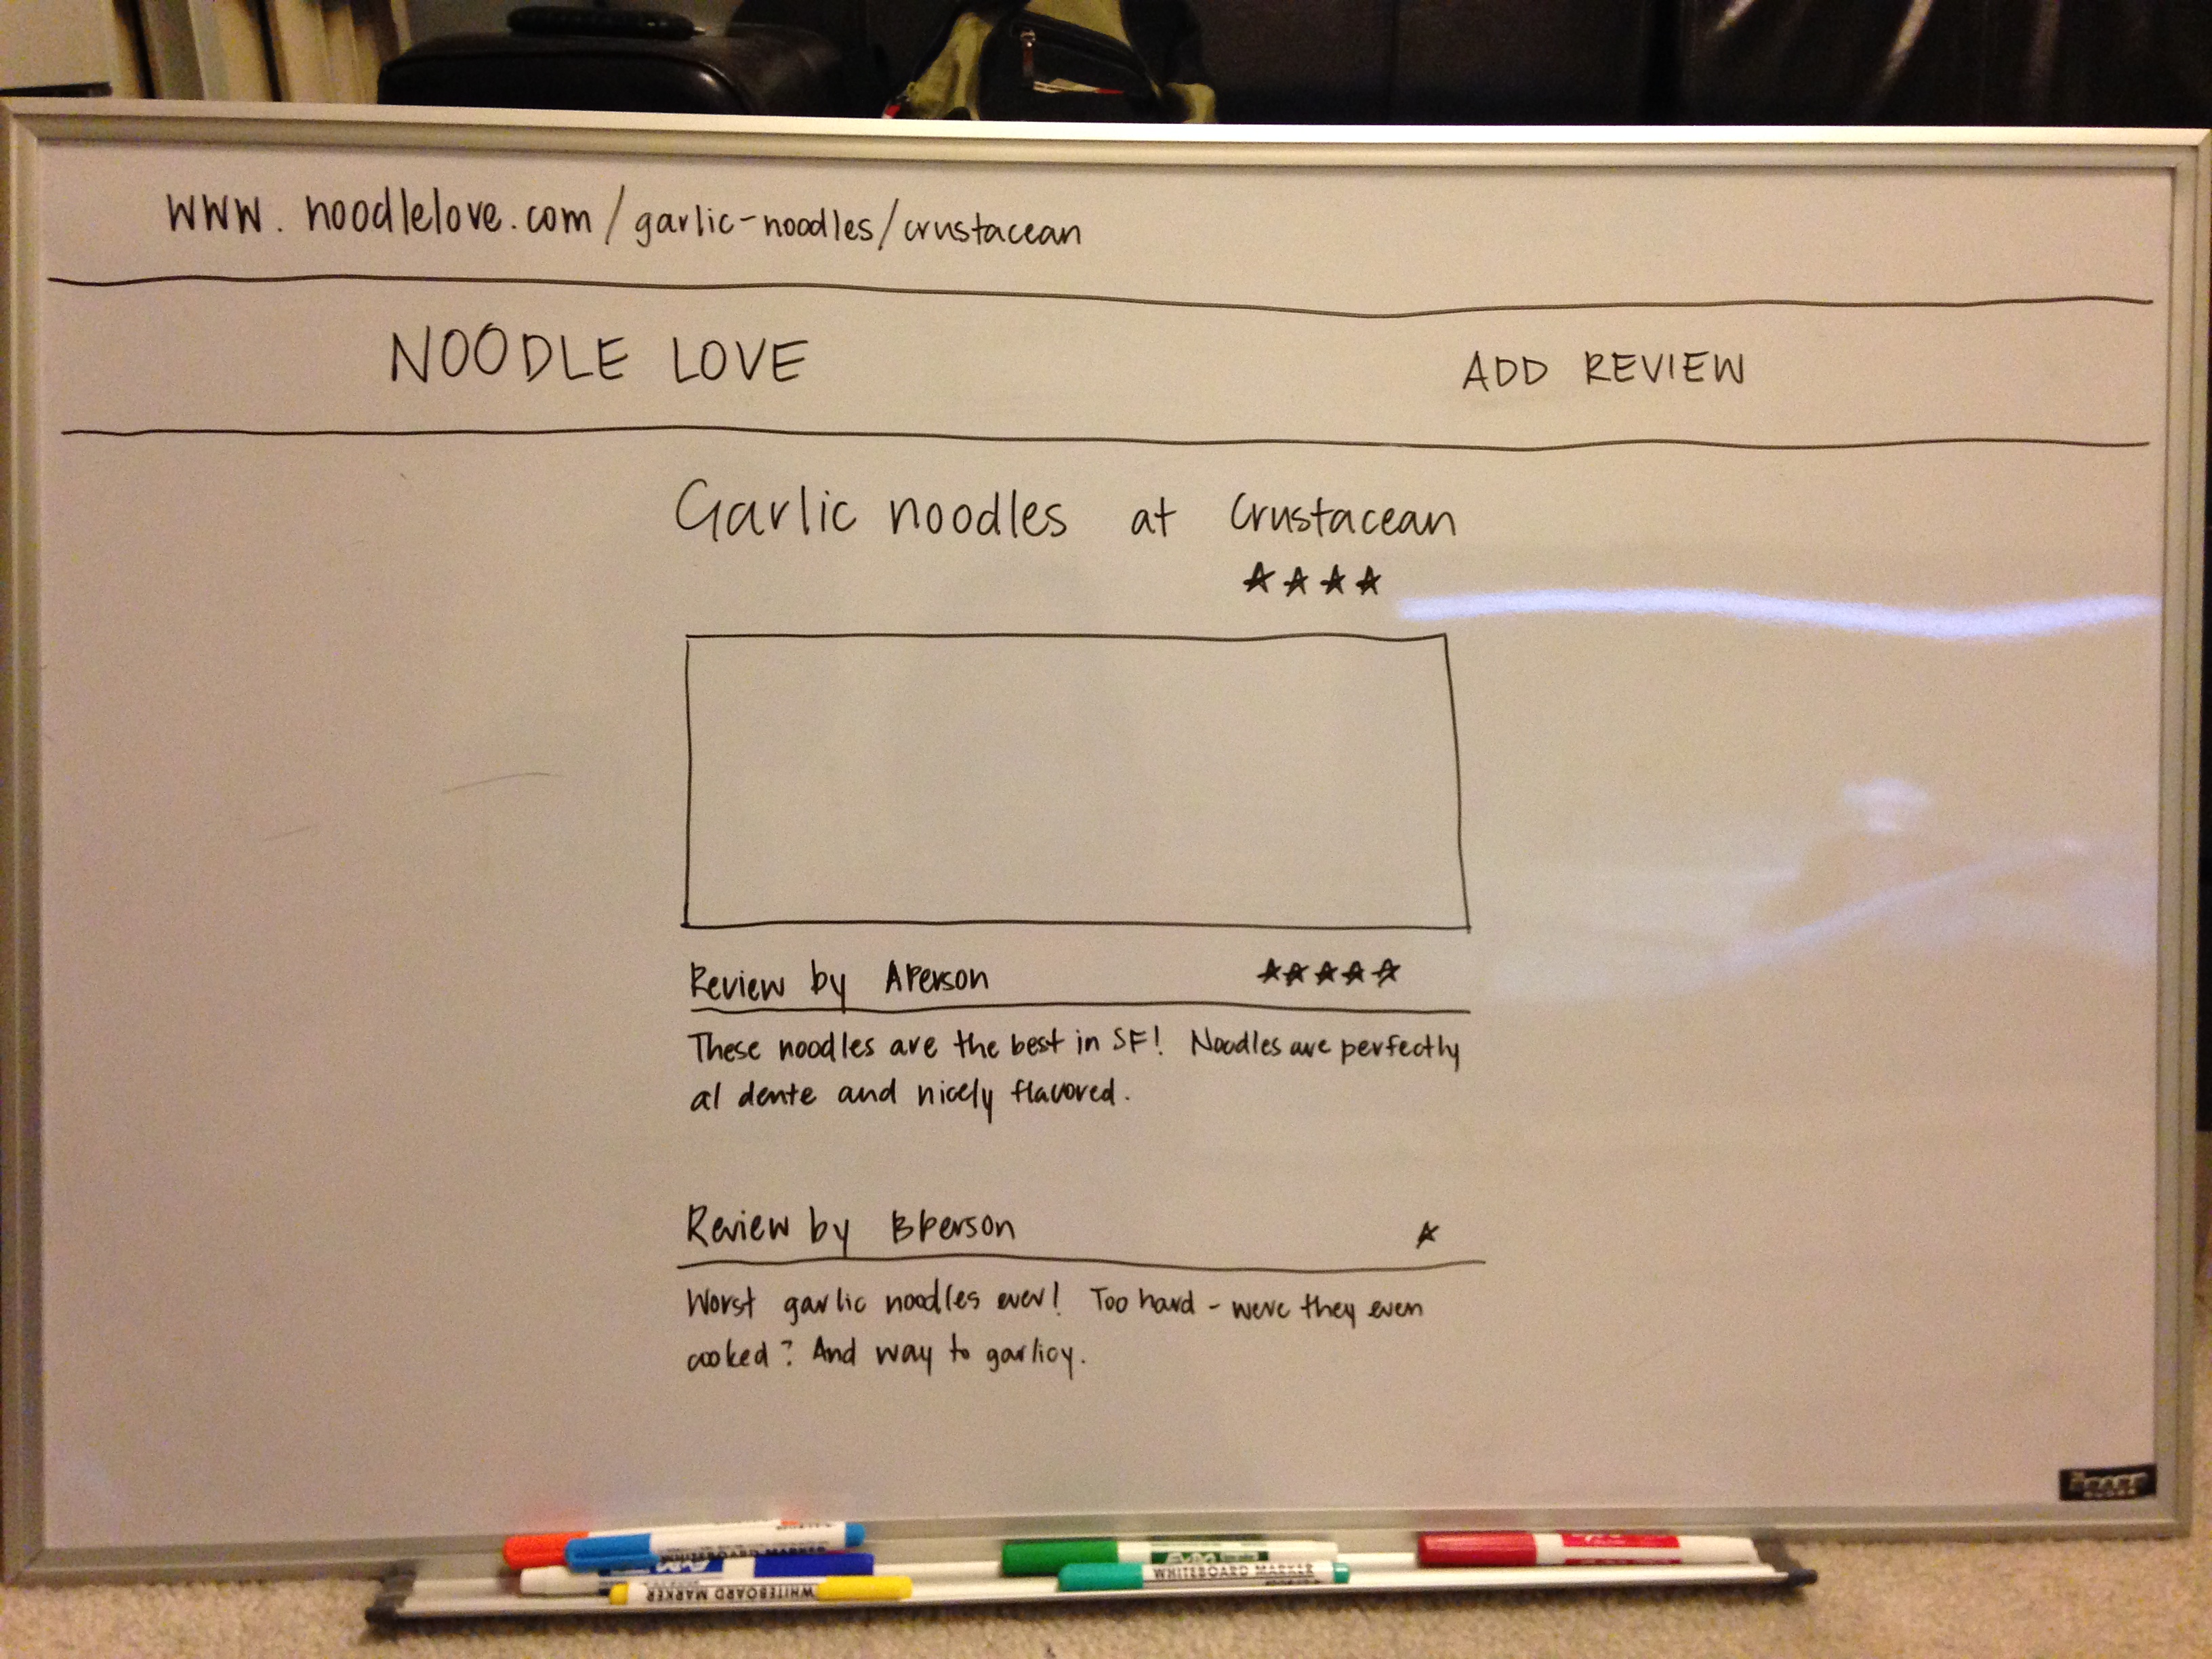 www.noodlelove.com/garlic-noodles/crustacean
NOODLE LOVE
ADD REVIEW
Garlic noodles at Crustacean
★★★★
Review by APerson ★★★★★
These noodles are the best in SF! Noodles are perfectly
al dente and nicely flavored.
Review by BPerson ★
Worst garlic noodles ever! Too hard - were they even
cooked? And way to garlicy.
WHITEBOARD MARKER
WHITEBOARD MARKER